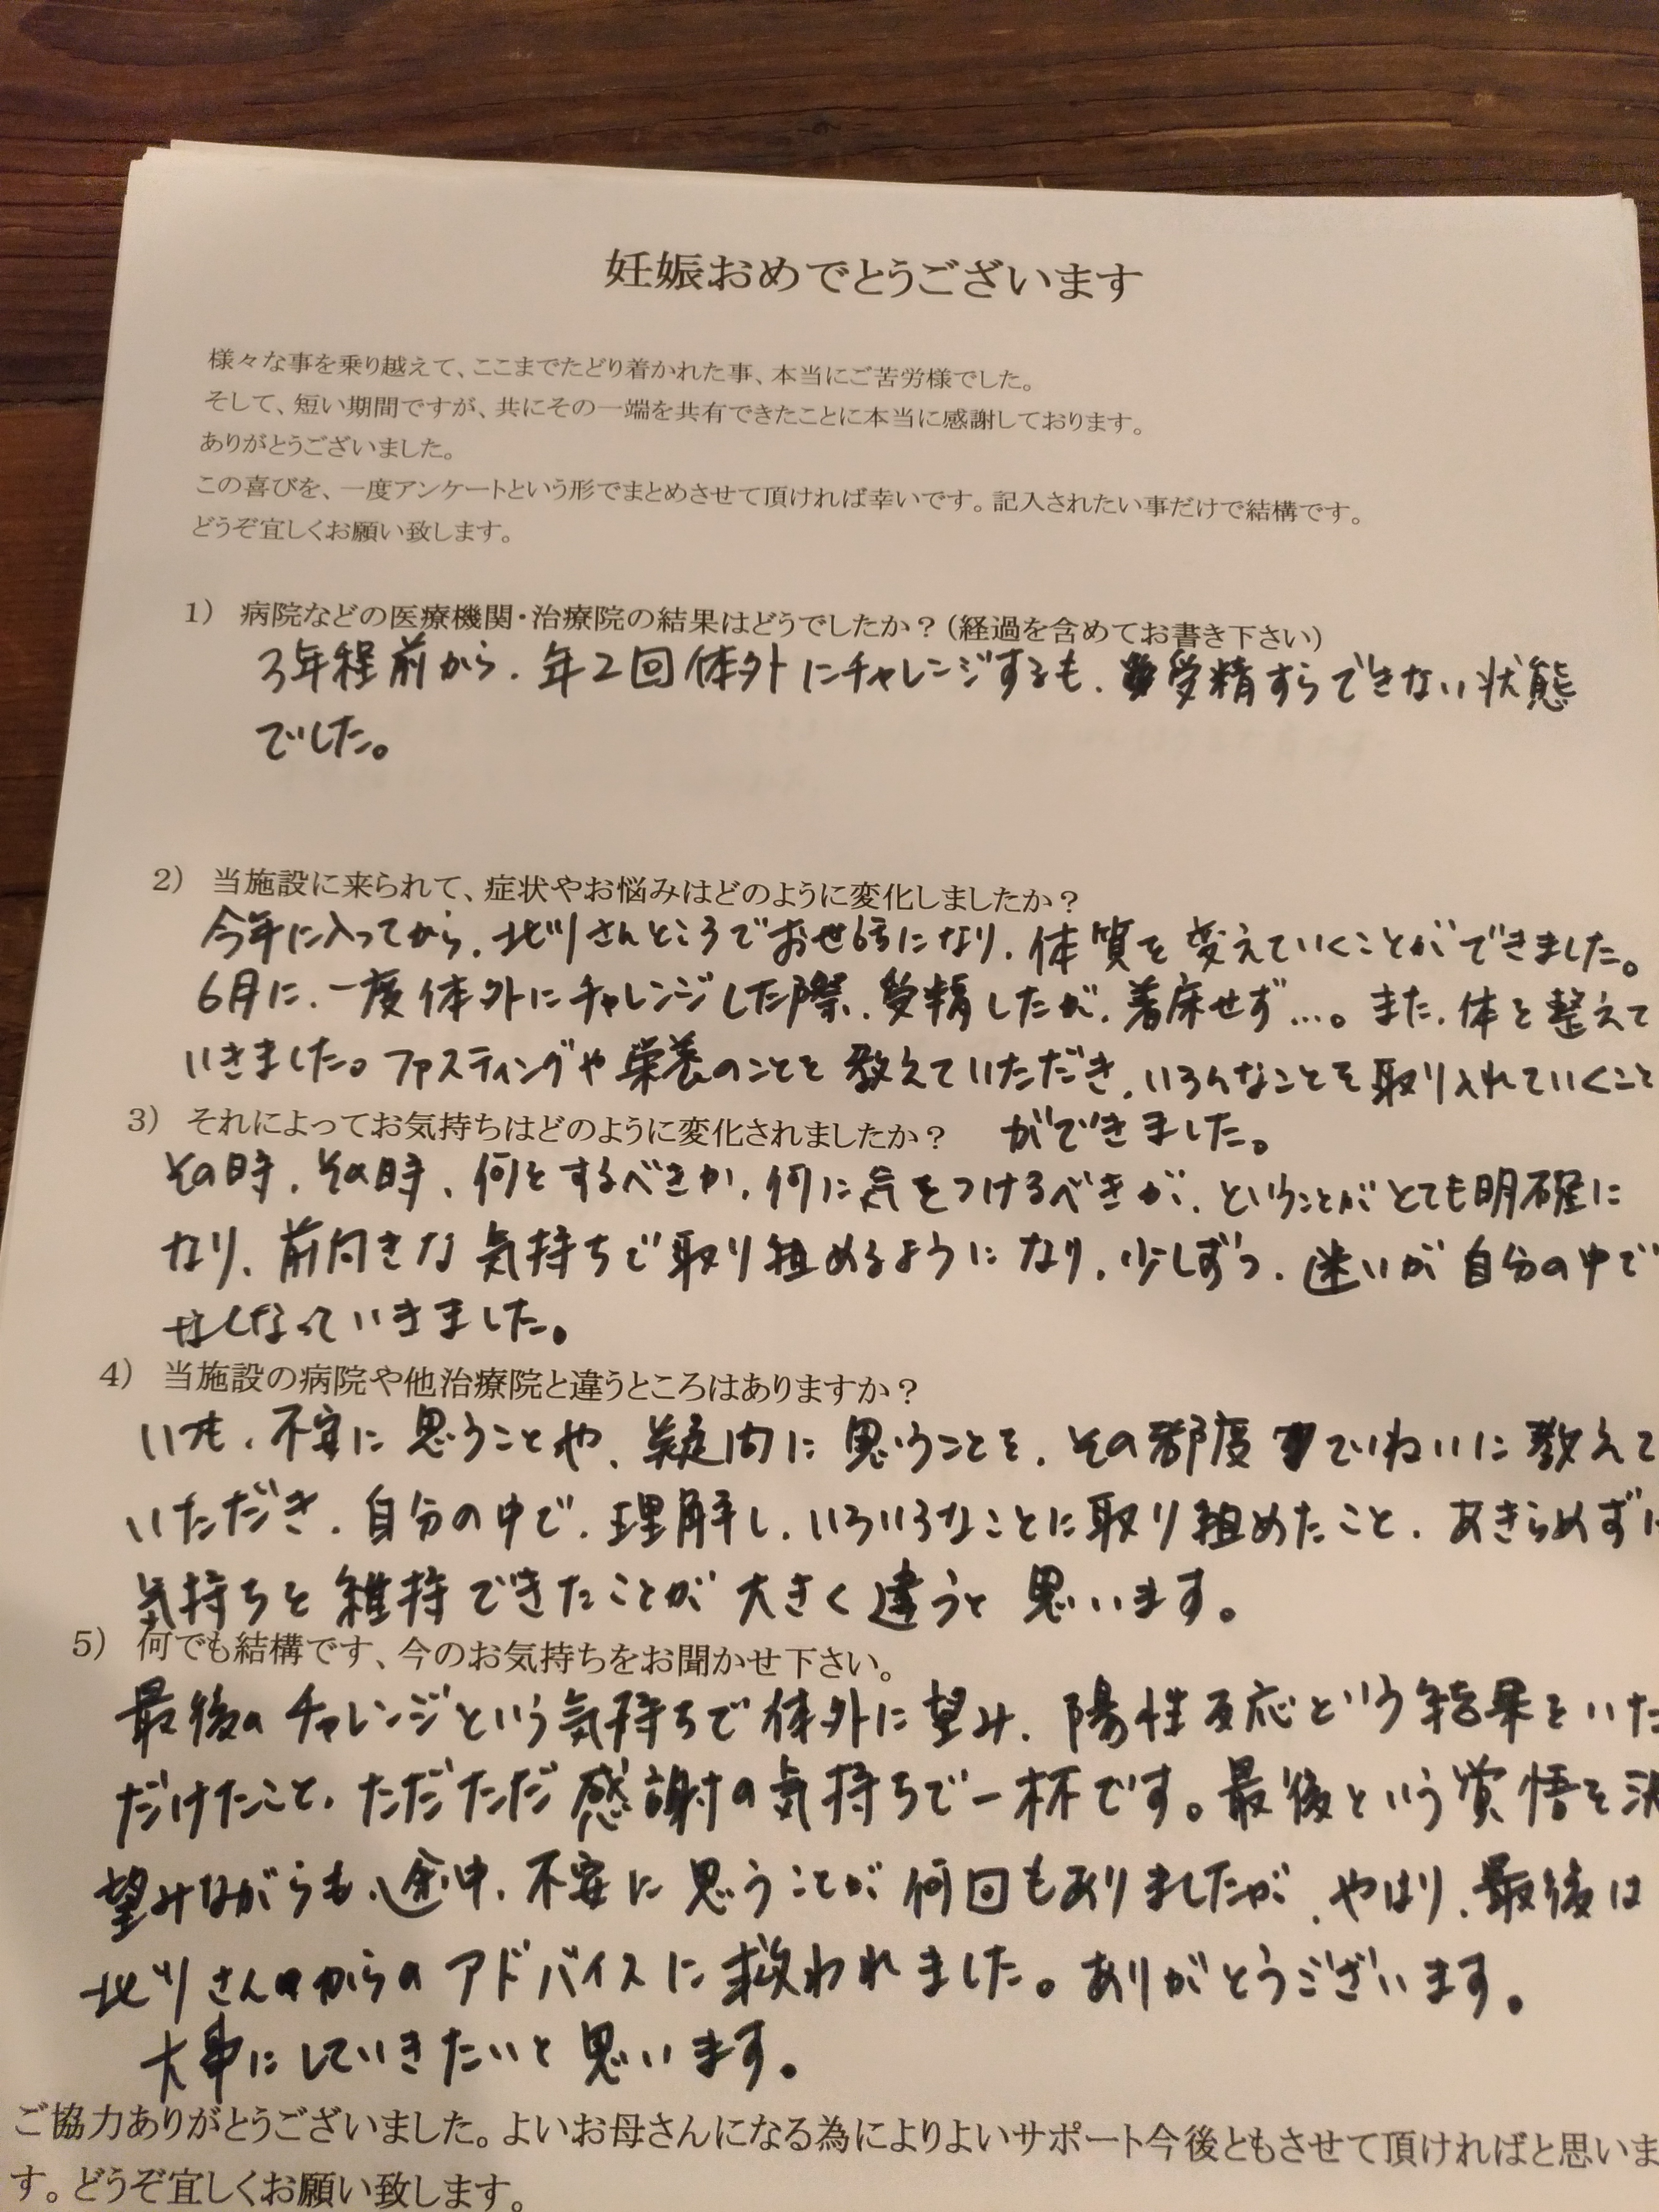 妊娠おめでとうございます
様々な事を乗り越えて、ここまでたどり着かれた事、本当にご苦労様でした。
そして、短い期間ですが、共にその一端を共有できたことに本当に感謝しております。
ありがとうございました。
この喜びを、一度アンケートという形でまとめさせて頂ければ幸いです。記入されたい事だけで結構です。
どうぞ宜しくお願い致します。
1) 病院などの医療機関・治療院の結果はどうでしたか？（経過を含めてお書き下さい）
3年程前から、年2回体外にチャレンジするも、受精すらできない状態
でした。
2) 当施設に来られて、症状やお悩みはどのように変化しましたか？
今年に入ってから、北川さんところでお世話になり、体質を変えていくことができました。
6月に、一度体外にチャレンジした際、受精したが、着床せず…。また、体を整えて
いきました。ファスティングや栄養のことを教えていただき、いろんなことを取り入れていくこと
3) それによってお気持ちはどのように変化されましたか？ ができました。
その時、その時、何をするべきか、何に気をつけるべきか、ということがとても明確に
なり、前向きな気持ちで取り組めるようになり、少しずつ、迷いが自分の中で
なくなっていきました。
4) 当施設の病院や他治療院と違うところはありますか？
いつも、不安に思うことや、疑問に思うことを、その都度ていねいに教えて
いただき、自分の中で、理解し、いろいろなことに取り組めたこと、あきらめずに
気持ちを維持できたことが大きく違うと思います。
5) 何でも結構です、今のお気持ちをお聞かせ下さい。
最後のチャレンジという気持ちで体外に望み、陽性反応という結果をいた
だけたこと、ただただ感謝の気持ちで一杯です。最後という覚悟を決
望みながらも、途中、不安に思うことが何回もありましたが、やはり、最後は
北川さんからのアドバイスに救われました。ありがとうございます。
大事にしていきたいと思います。
ご協力ありがとうございました。よいお母さんになる為によりよいサポート今後ともさせて頂ければと思いま
す。どうぞ宜しくお願い致します。